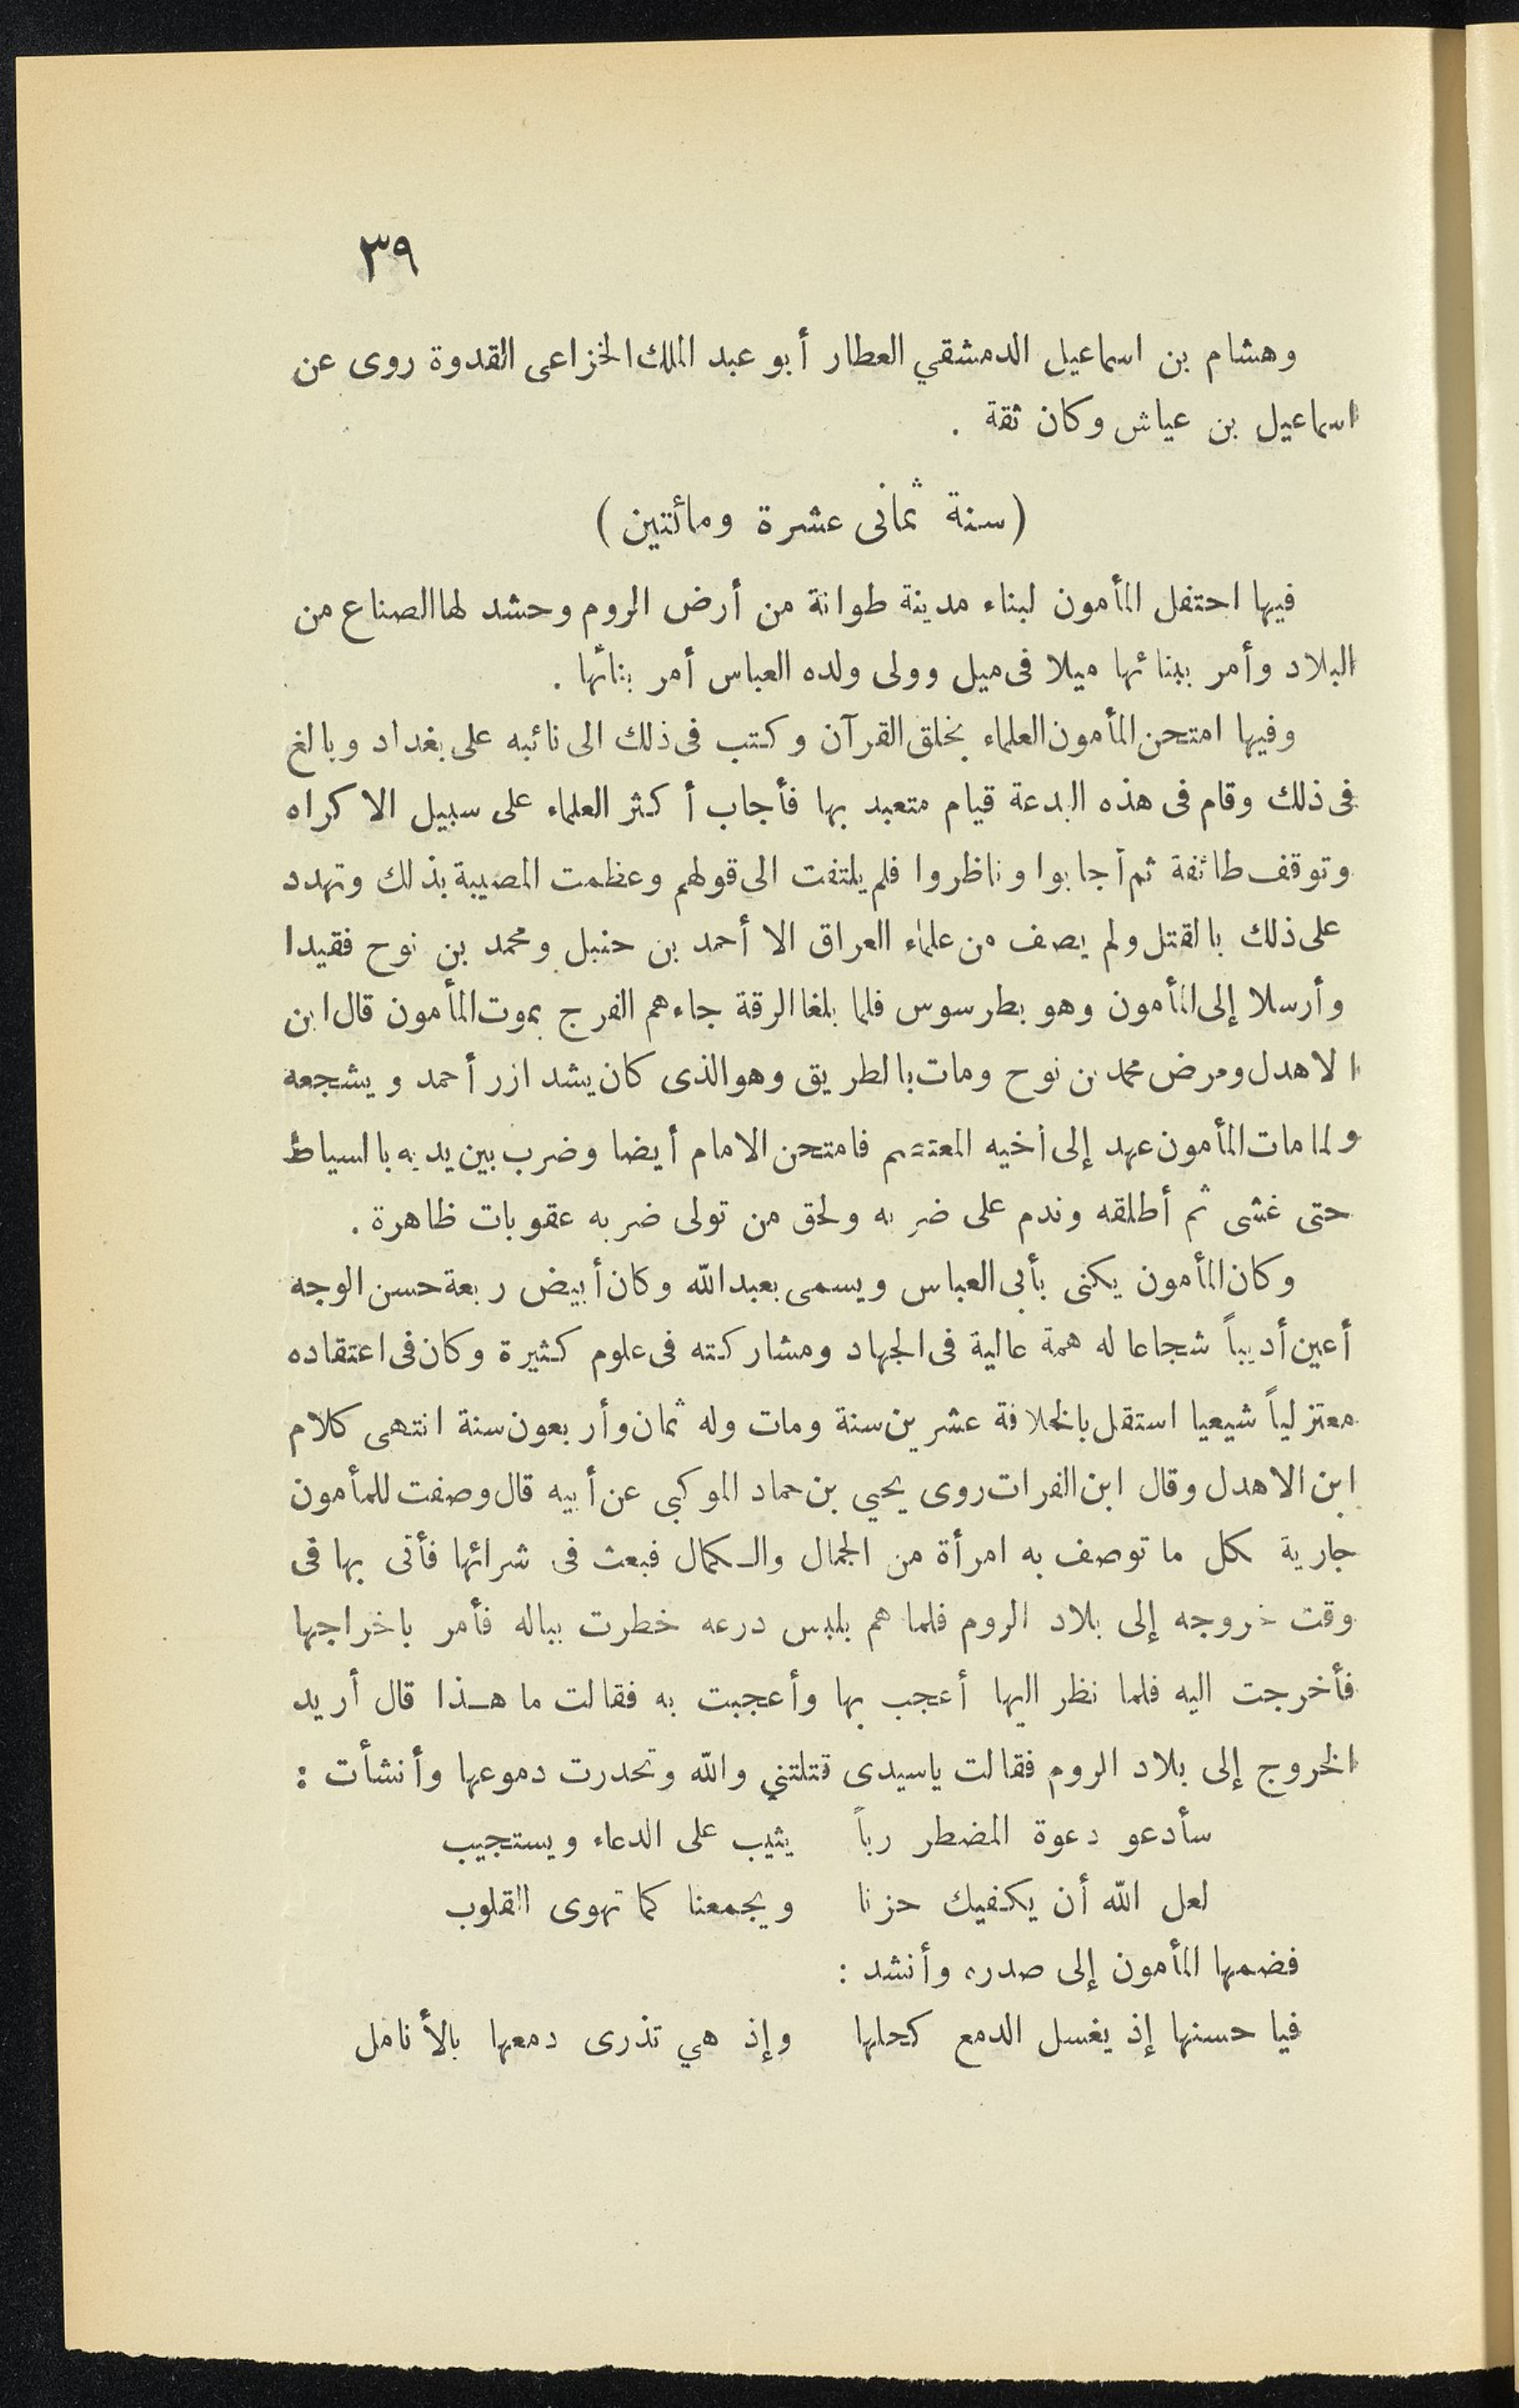 ٣٩
وهشام بن اسماعيل الدمشقي العطار أبو عبد الملك الخزاعى القدوة روى عن
اسماعيل بن عياش وكان ثقة .
(سنة ثمانى عشرة ومائتين)
فيها احتفل المأمون لبناء مدينة طوانة من أرض الروم وحشد لها الصناع من
البلاد وأمر ببنائها ميلا فى ميل وولى ولده العباس أمر بنائها .
وفيها امتحن المأمون العلماء بخلق القرآن وكتب فى ذلك الى نائبه على بغداد وبالغ
فى ذلك وقام فى هذه البدعة قيام متعبد بها فأجاب أكثر العلماء على سبيل الاكراه
وتوقف طائفة ثم أجابوا وناظروا فلم يلتفت الى قولهم وعظمت المصيبة بذلك وتهدد
على ذلك بالقتل ولم يصف من علماء العراق الا أحمد بن حنبل ومحمد بن نوح فقيدا
وأرسلا إلى المأمون وهو بطرسوس فلما بلغا الرقة جاءهم الفرج بموت المأمون قال ابن
الاهدل ومرض محمد بن نوح ومات بالطريق وهو الذى كان يشد ازر أحمد ويشجعه
ولما مات المأمون عهد إلى أخيه المعتصم فامتحن الامام أيضا وضرب بين يديه بالسياط
حتى غشى ثم أطلقه وندم على ضربه ولحق من تولى ضربه عقوبات ظاهرة .
وكان المأمون يكنى بأبى العباس ويسمى بعبد الله وكان أبيض ربعة حسن الوجه
أعين أديباً شجاعا له همة عالية فى الجهاد ومشاركته فى علوم كثيرة وكان فى اعتقاده
معتزلياً شيعيا استقل بالخلافة عشرين سنة ومات وله ثمان وأربعون سنة انتهى كلام
ابن الاهدل وقال ابن الفرات روى يحيي بن حماد الموكبى عن أبيه قال وصفت للمأمون
جارية بكل ما توصف به امرأة من الجمال والكمال فبعث فى شرائها فأتى بها فى
وقت خروجه إلى بلاد الروم فلما هم بلبس درعه خطرت بباله فأمر باخراجها
فأخرجت اليه فلما نظر اليها أعجب بها وأعجبت به فقالت ما هذا قال أريد
الخروج إلى بلاد الروم فقالت ياسيدى قتلتني والله وتحدرت دموعها وأنشأت :
سأدعو دعوة المضطر رباً يثيب على الدعاء ويستجيب
لعل الله أن يكفيك حزنا ويجمعنا كما تهوى القلوب
فضمها المأمون إلى صدره وأنشد :
فيا حسنها إذ يغسل الدمع كحلها وإذ هي تذرى دمعها بالأنامل